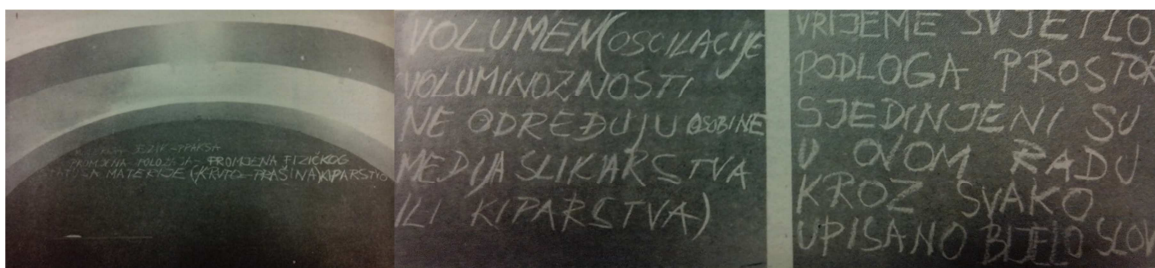 PROMJENA POLOŽAJA - PROMJENA FIZIČKOG
MATERIJE (KRUTO-PRAŠINA) KIPARSTVO
VOLUMEN (OSCILACIJE
VOLUMINOZNOSTI
NE ODREĐUJU OSOBINE
MEDIJA SLIKARSTVA
ILI KIPARSTVA)
VRIJEME SVJETLO
PODLOGA PROSTOR
SJEDINJENI SU
U OVOM RADU
KROZ SVAKO
UPISANO BIJELO SLOV